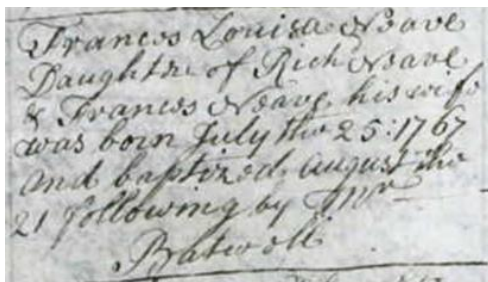 Frances Louisa Neave
Daughter of Rich Neave
& Frances Neave his wife
was born July the 25: 1767
and baptized august the
21 following by Mr